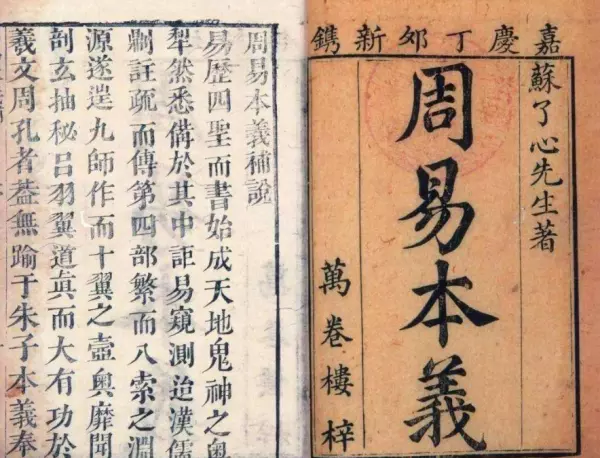 嘉慶丁夘新鐫
蘇了心先生著
周易本義
萬卷樓梓
周易本義補説
易歷四聖而書始成天地鬼神之奥
犁然悉備於其中詎易窺測迨漢儒
剏註疏而傳第四部繁而八索之淵
源遂逞九師作而十翼之壼奥靡聞
剖玄抽秘吕羽翼道眞而大有功於
羲文周孔者葢無踰于朱子本義奉